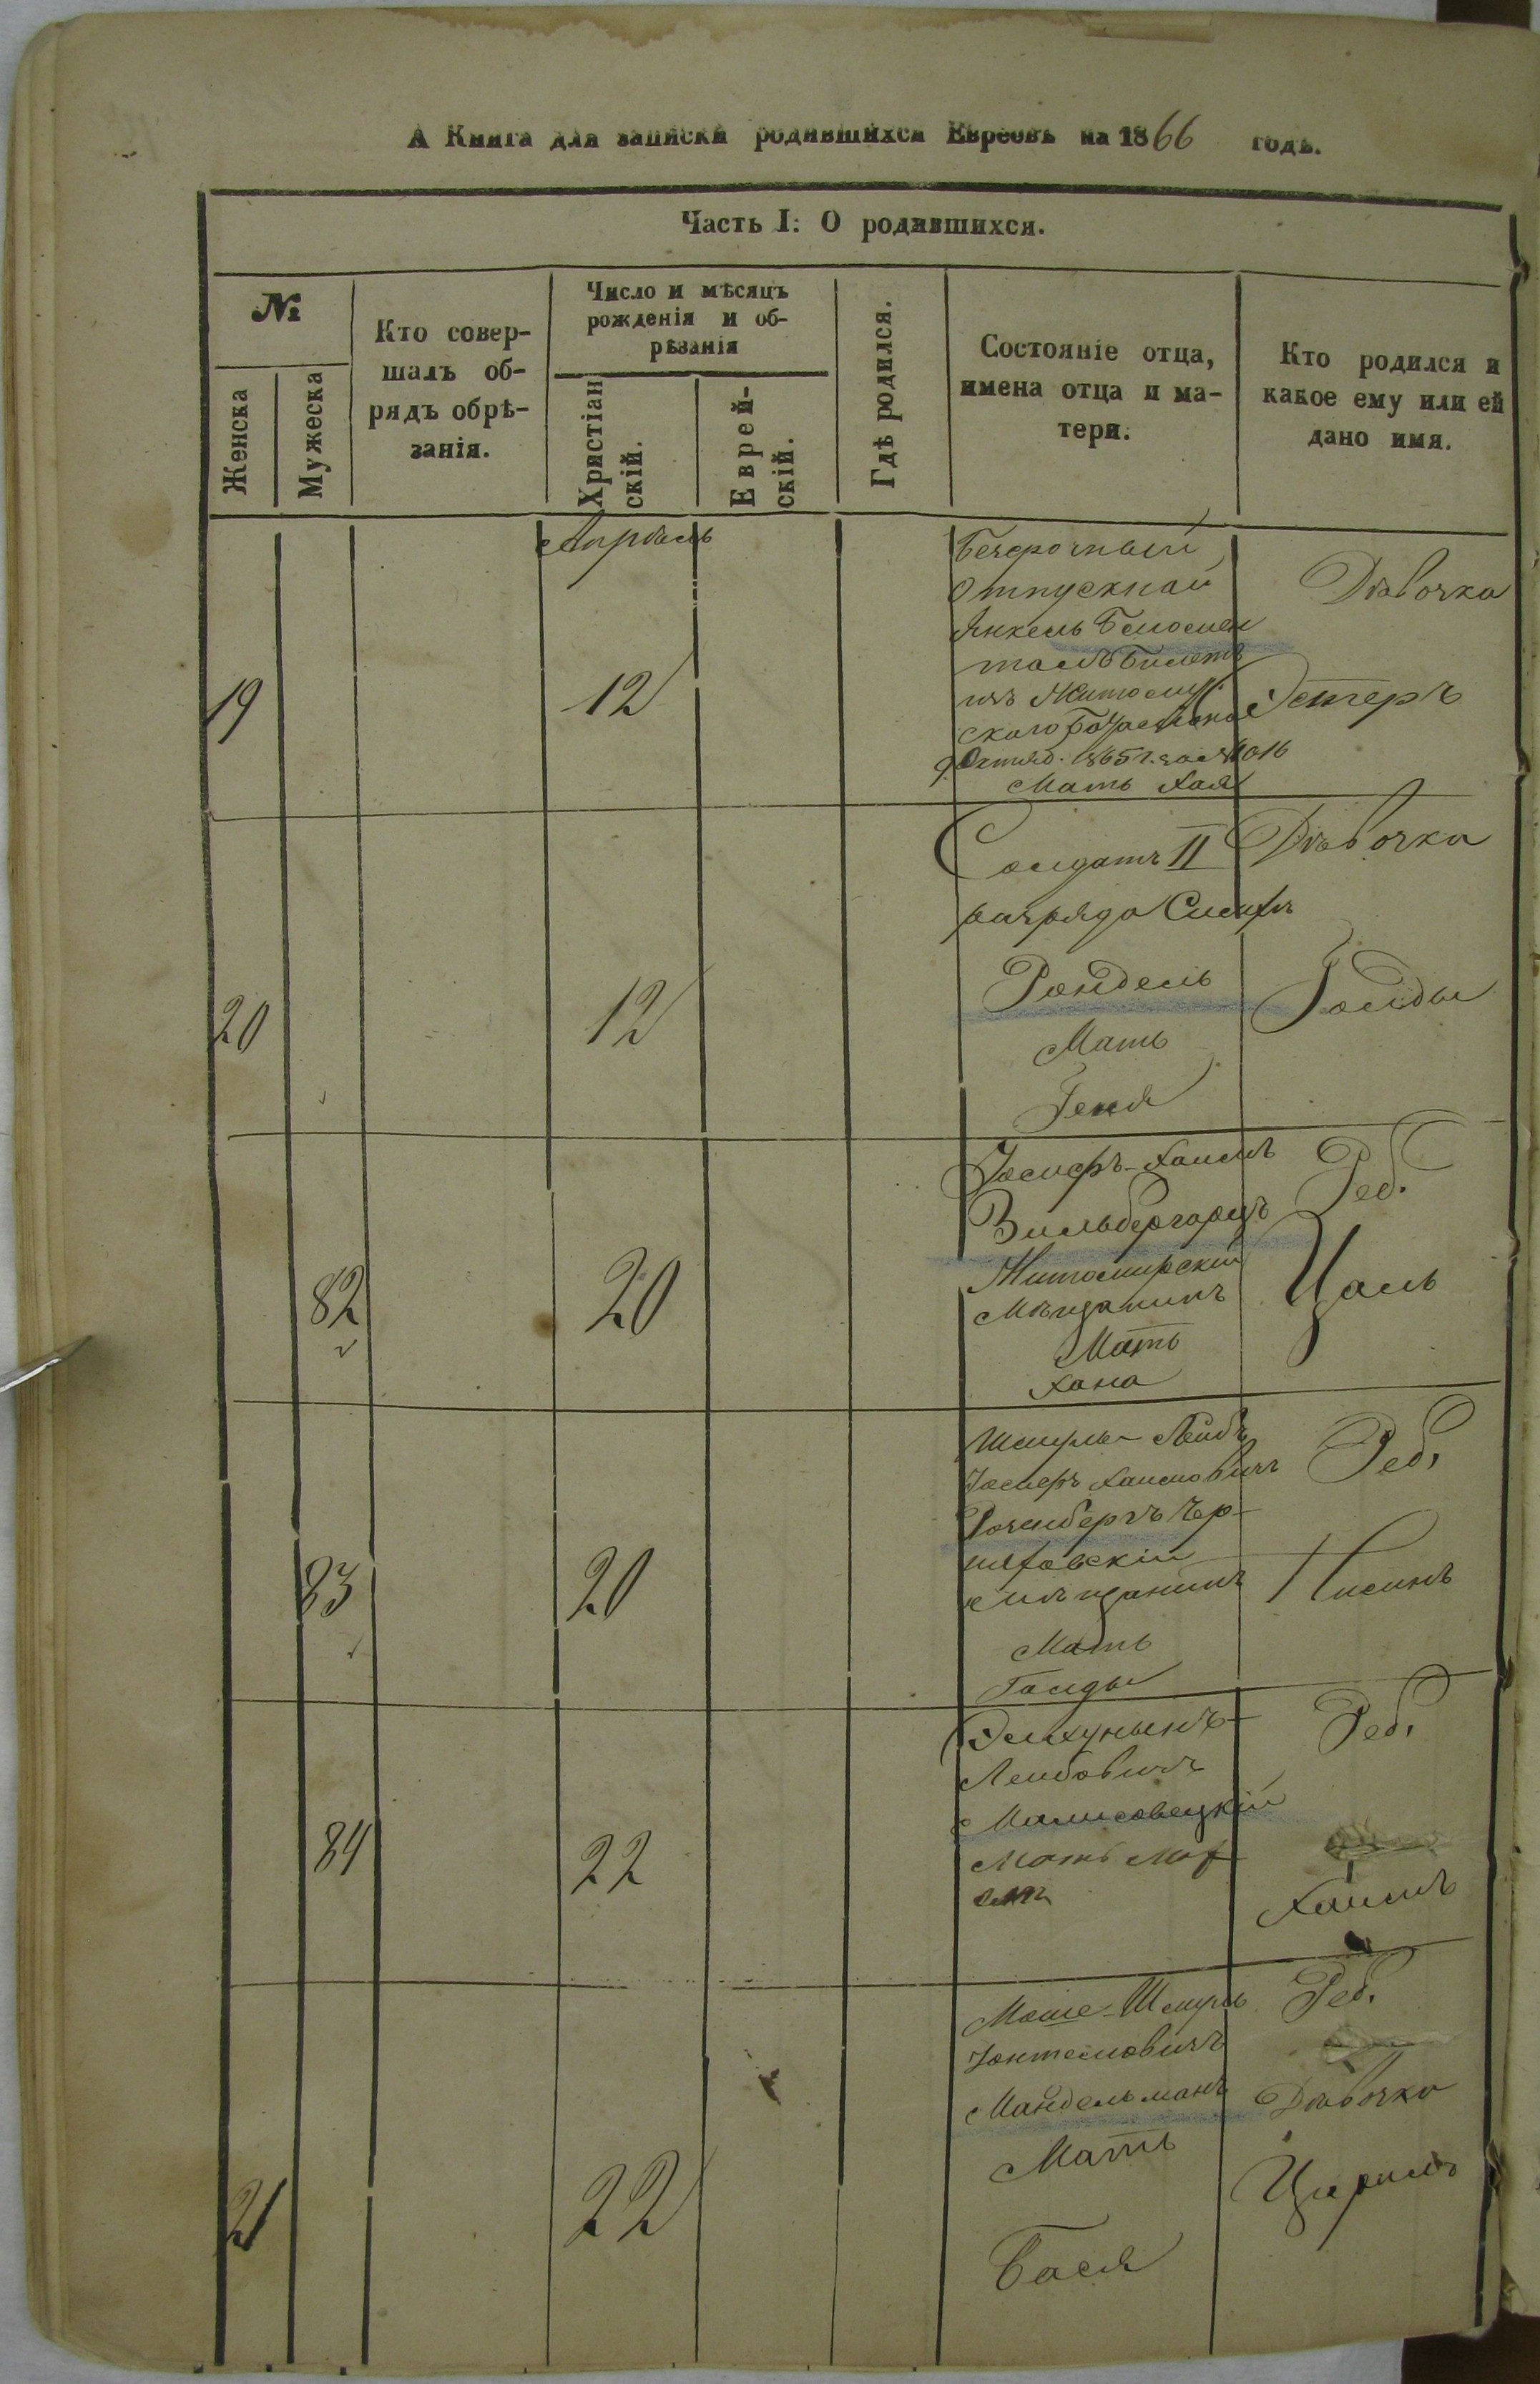 А Книга для записки родившихся Евреевъ на 1866 годъ.
Часть I: О родившихся.
№
Женска
Мужеска
Кто совер-
шалъ об-
рядъ обрѣ-
занія.
Число и мѣсяцъ
рожденія и об-
рѣзанія
Христіан
скій.
Еврей-
скій.
Гдѣ родился.
Состояніе отца,
имена отца и ма-
тери.
Кто родился и
какое ему или ей
дано имя.
Апрѣль
19
12
Безсрочный
Отпускной
Янкель
талъ билетъ
9 Октяб. 1865 г. за № 4016
Мать Хая
Дѣвочка
Эстеръ
20
12
Солдатъ II
разряда
Рондель
Мать
Геня
Дѣвочка
Гольды
82
20
Іосифъ-Хаимъ
Вильбергарцъ
Житомирскій
Мѣщанинъ
Мать
Хана
Реб.
Цаль
83
20
Шмуль-Лейбъ
Іосифъ Хаимовичъ
Розенбергъ Чер-
няховскій
мѣщанинъ
Мать
Голды
Реб.
Нисинъ
84
22
Элихунынъ-
Лейбовичъ
Малисовецкій
Мать
Реб.
Хаимъ
21
22
Моше-Шмуль
Іонтемовичъ
Мандельманъ
Мать
Бася
Реб.
Дѣвочка
Ципримъ